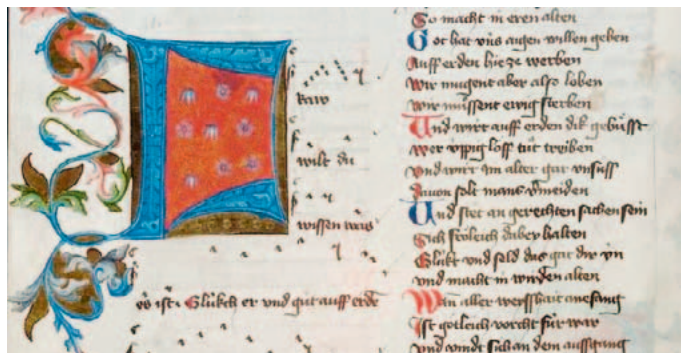 F
raw
wilt du
wissen was
es ist · Glükch er vnd gut auff erde
So macht in eren alten
Got hat vns augen willen geben
Auff erden hie ze werben
Wir mugent aber also loben
Wir müssent ewig sterben
Vnd wirt auff erden dik gebüsst
Wer üppig loff tut treiben
Vnd wirt im alter gar vnsüss
Dauon solt mans vermeiden
Vnd stet an gerechten sachen sein
Sich frölich dabey halten
Glükt vnd seld das gat dir yn
vnd macht in wirden alten
Wan aller weisshait anefang
Ist gotleich vorcht für war
vnd windt sich an dem aussgang